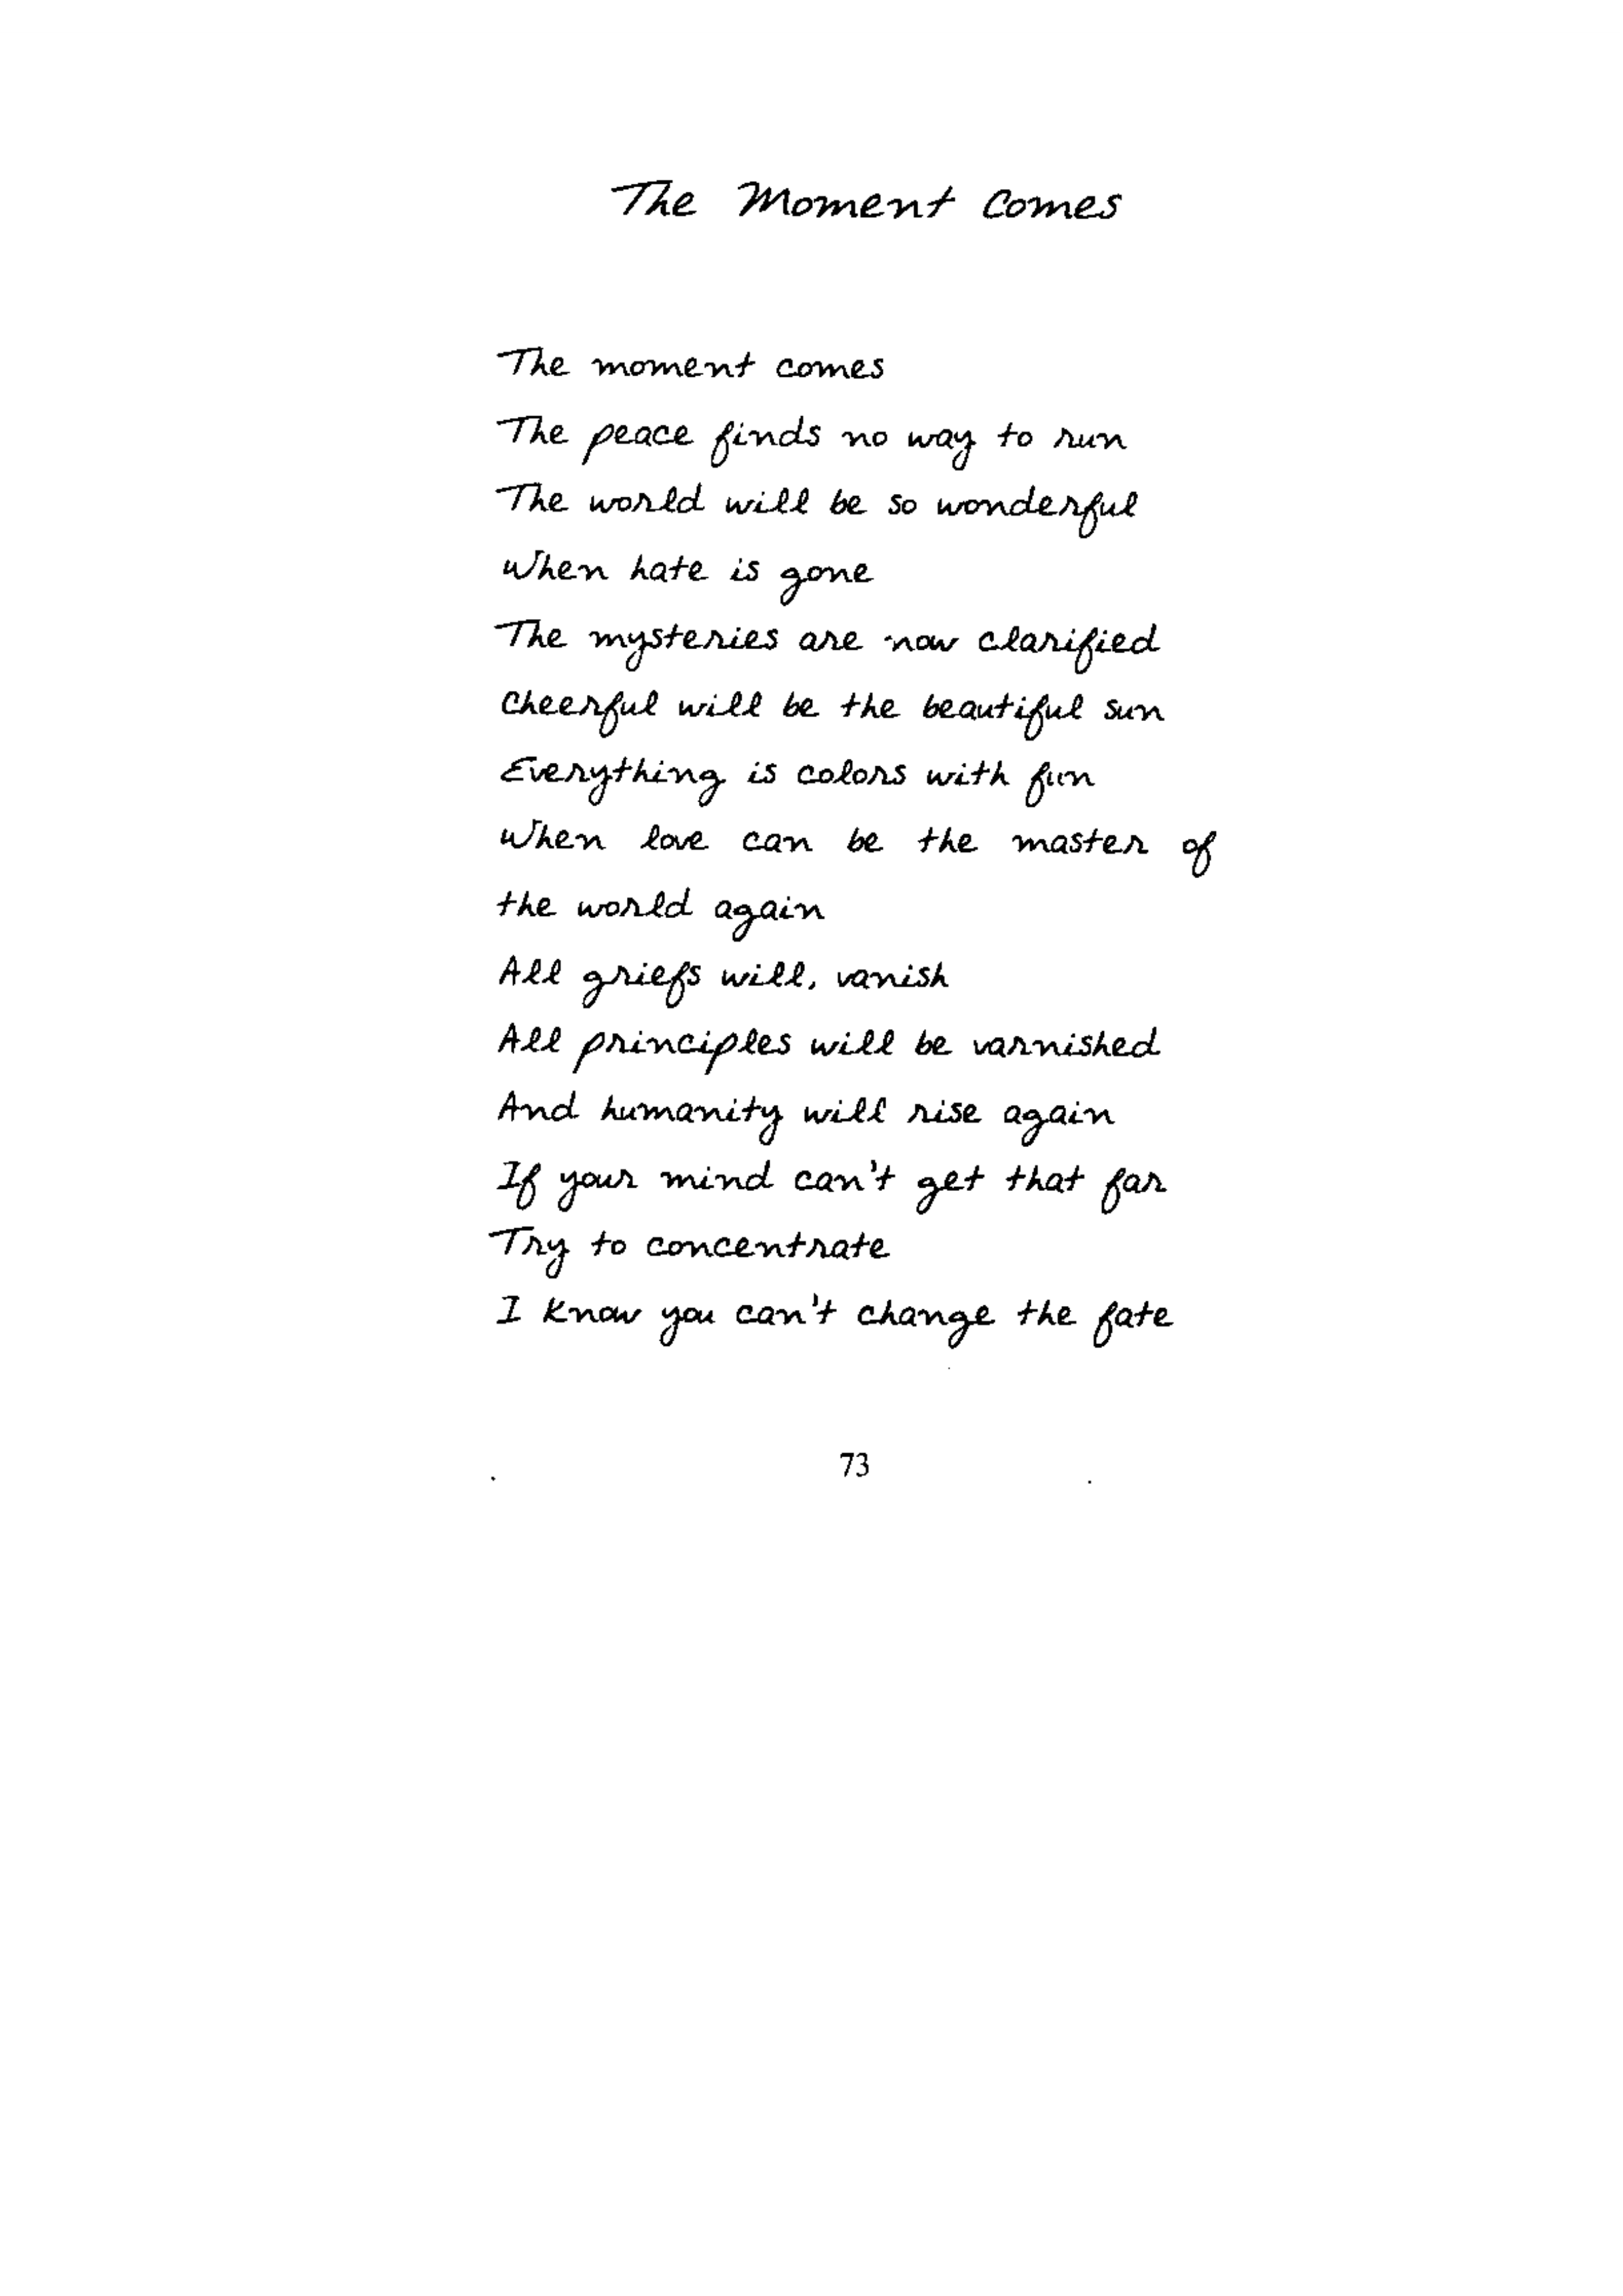 The Moment Comes
The moment comes
The peace finds no way to run
The world will be so wonderful
When hate is gone
The mysteries are now clarified
Cheerful will be the beautiful sun
Everything is colors with fun
When love can be the master of
the world again
All griefs will, vanish
All principles will be varnished
And humanity will rise again
If your mind can't get that far
Try to concentrate
I know you can't change the fate
73